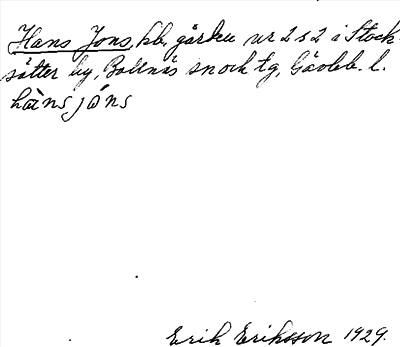 Hans Jons, kb, gården nr 2 s 2 i Stock-
sätter by, Bollnäs sn och tg, Gävleb. l.
hàns jóns
Erik Eriksson 1929.